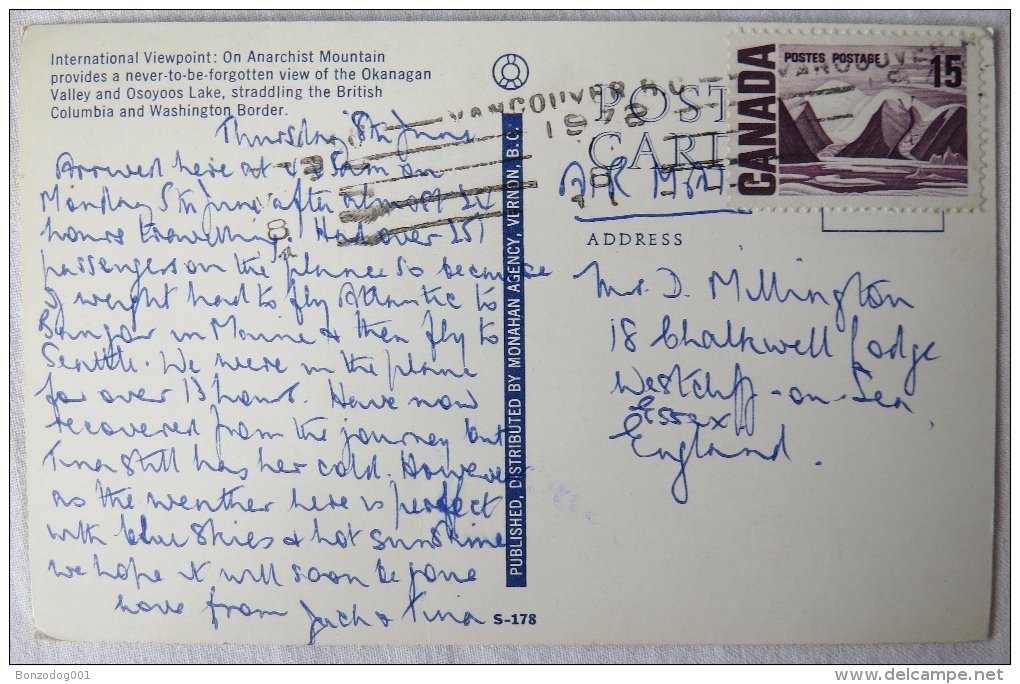 International Viewpoint: On Anarchist Mountain
provides a never-to-be-forgotten view of the Okanagan
Valley and Osoyoos Lake, straddling the British
Columbia and Washington Border.
Thursday 8th June
Arrived here at 4.35am on
Monday 5th June after almost 24
hours travelling. Had over 251
passengers on the plane so because
of weight had to fly Atlantic to
Bangor in Maine & then fly to
Seattle. We were in the plane
for over 13 hours. Have now
recovered from the journey but
Tina still has her cold. However
as the weather here is perfect
with blue skies & hot sunshine
we hope it will soon be gone
Love from Jack & Tina
S-178
PUBLISHED, DISTRIBUTED BY MONAHAN AGENCY, VERNON, B.C.
VANCOUVER B.C.
1978
8
VANCOUVER
POST
CARD
CANADA
POSTES POSTAGE
15
AIR MAIL
ADDRESS
Mr. D. Millington
18 Chalkwell Lodge
Westcliff-on-Sea,
Essex
England.
Bonzodog001
www.delcampe.net